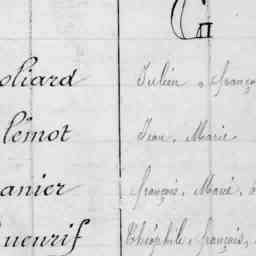 oliard Julien, franço
lémot Jean, Marie
anier françois, Marie,
uenrif Théophile, françois,